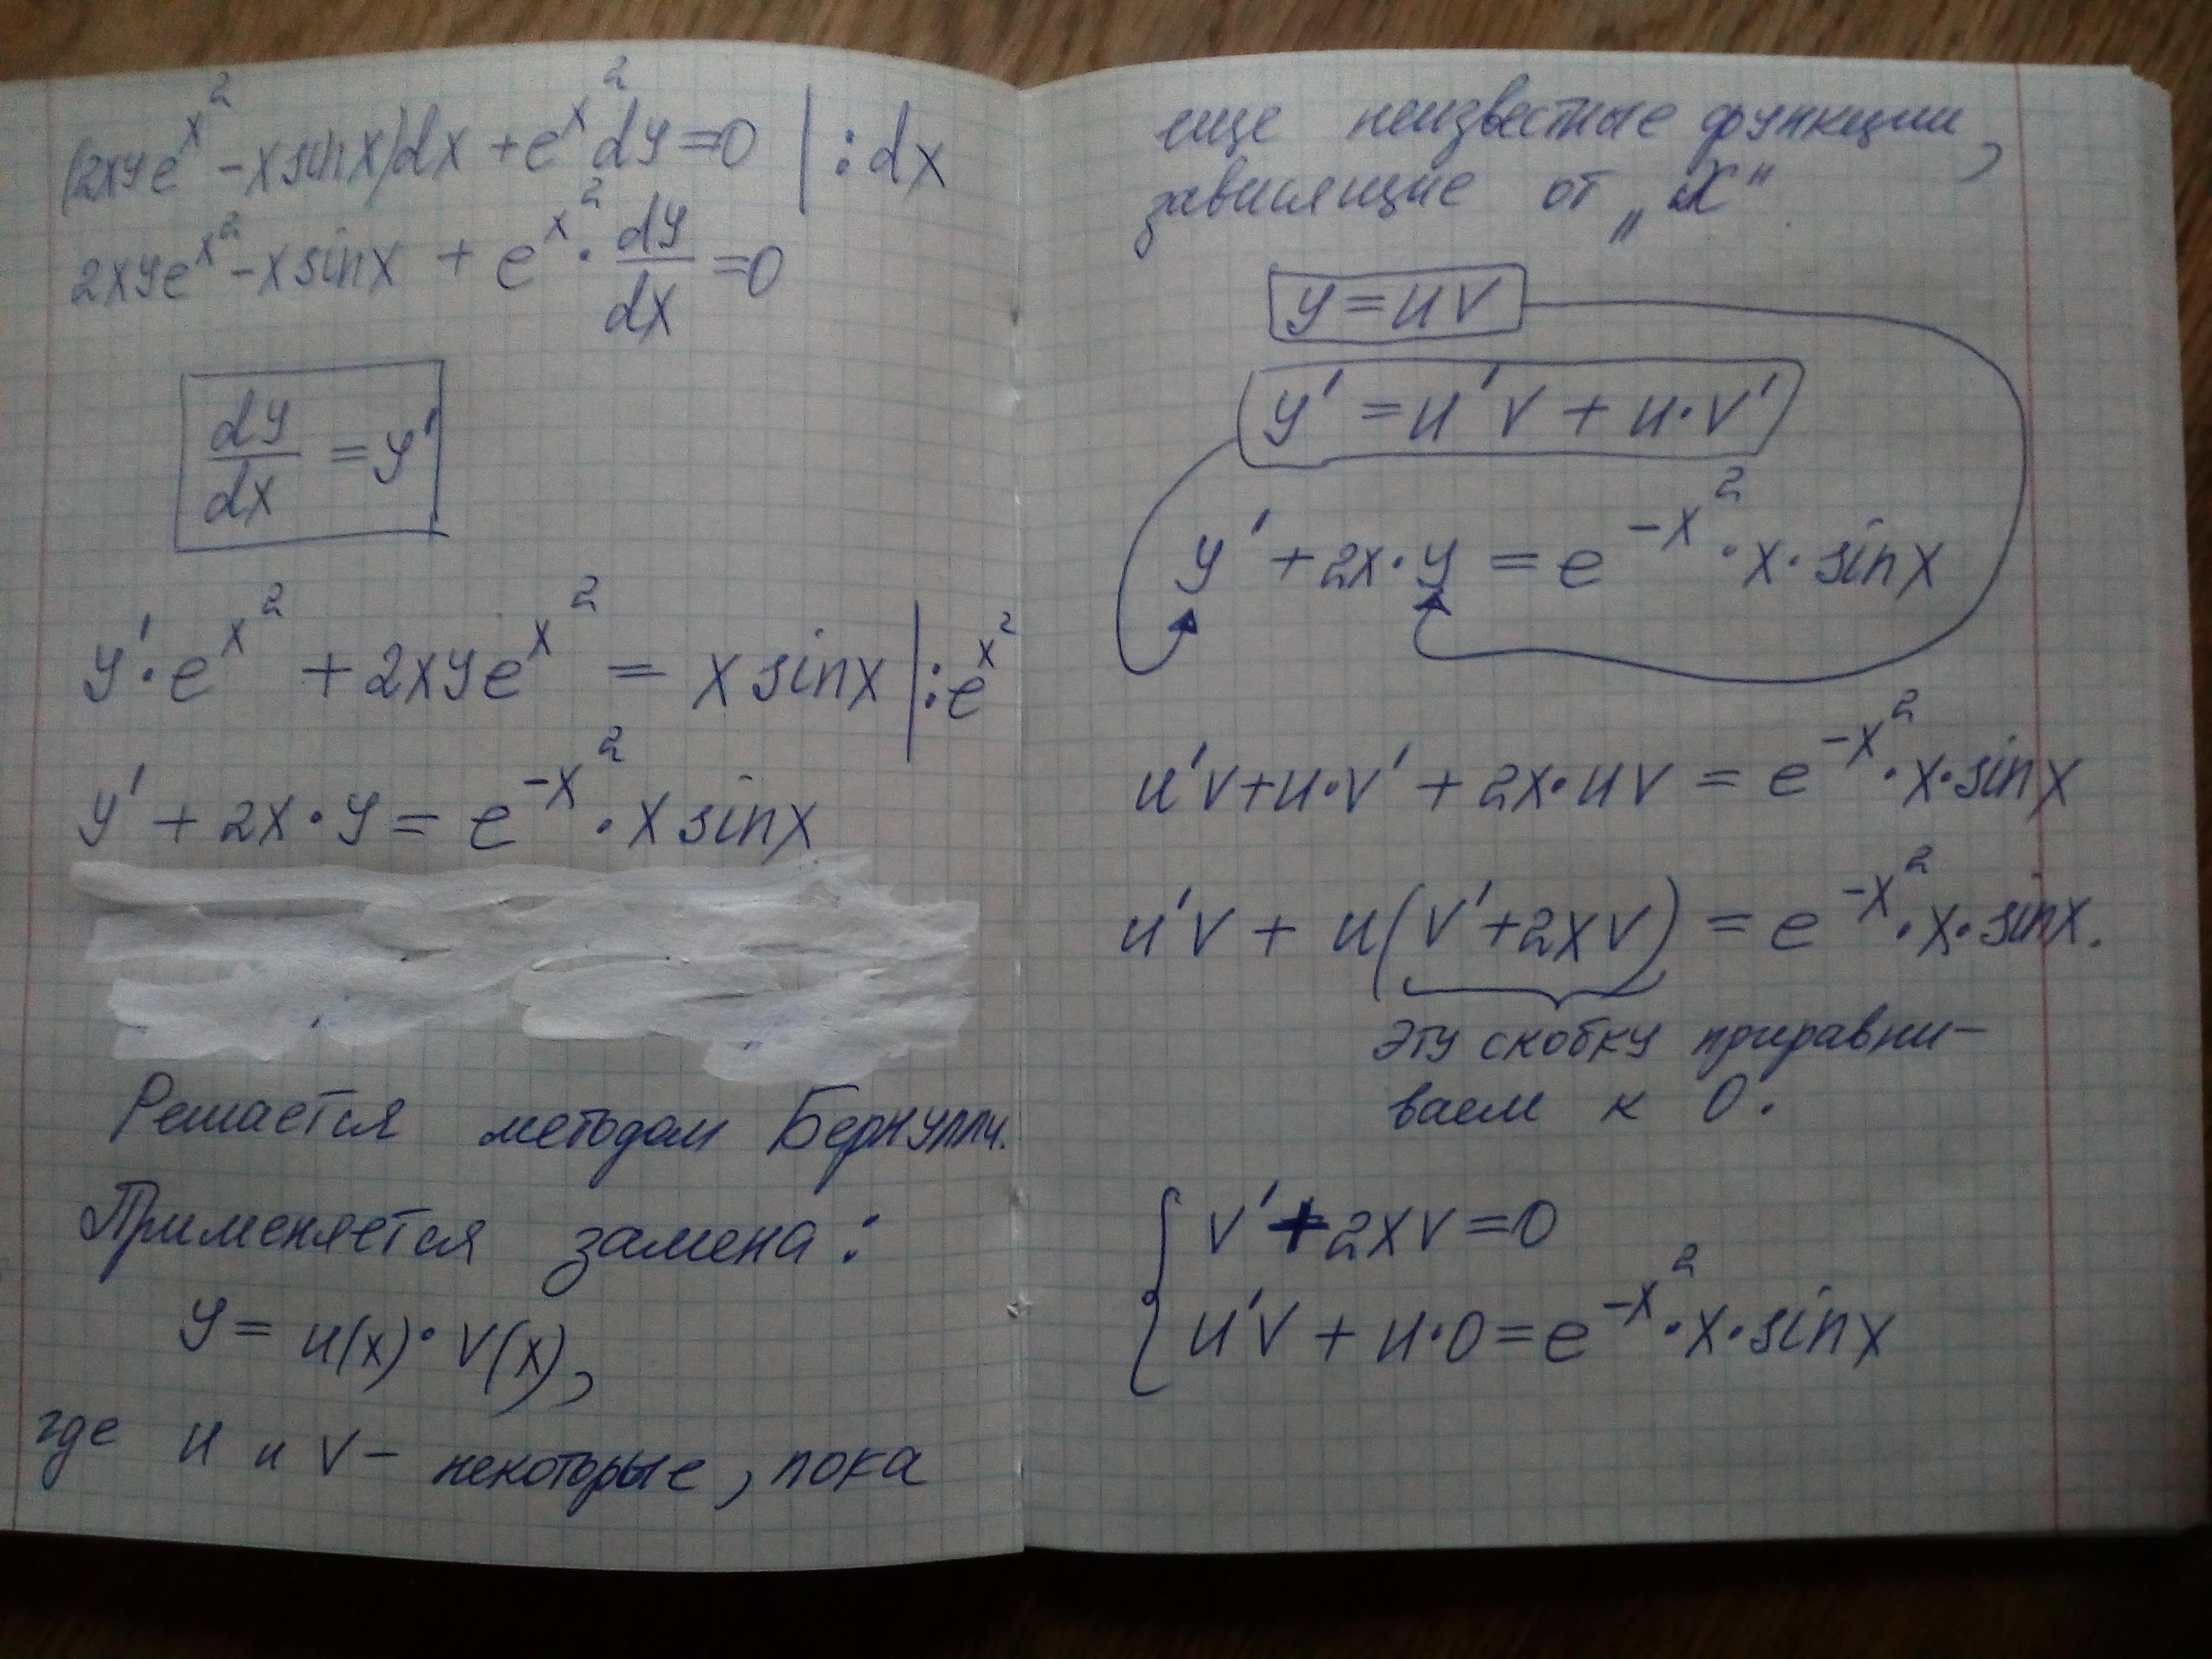 (2xye^{x^2} - x sinx)dx + e^{x^2}dy = 0 | : dx
2xye^{x^2} - x sinx + e^{x^2} · dy/dx = 0
dy/dx = y'
y' · e^{x^2} + 2xye^{x^2} = x sinx | : e^{x^2}
y' + 2x · y = e^{-x^2} · x sinx
Решается методом Бернулли.
Применяется замена:
y = u(x) · v(x),
где u и v – некоторые, пока
еще неизвестные функции,
зависящие от „x"
y = uv
y' = u'v + u · v'
y' + 2x · y = e^{-x^2} · x · sinx
u'v + u · v' + 2x · uv = e^{-x^2} · x · sinx
u'v + u(v' + 2xv) = e^{-x^2} · x · sinx.
Эту скобку приравни-
ваем к 0.
{ v' + 2xv = 0
u'v + u · 0 = e^{-x^2} · x · sinx